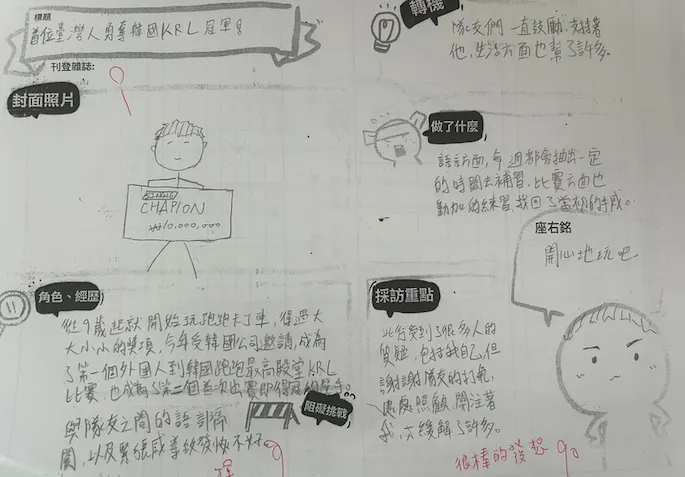 標題
首位臺灣人勇奪韓國KRL冠軍!
刊登雜誌:
封面照片
SINGLE
CHAPION
₩10,000,000
角色、經歷
從9歲起就開始玩跑跑卡丁車,得過大
大小小的獎項,今年受韓國公司邀請,成為
了第一個外國人到韓國跑跑最高殿堂KRL
比賽,也成為第二個首次出賽即得冠的選手。
阻礙挑戰
與隊友之間的語言隔
閡,以及緊張感導致發揮不好。
轉機
隊友們一直鼓勵、支持著
他,生活方面也幫了許多。
做了什麼
語言方面,每週都會抽出一定
的時間去補習,比賽方面也
更加的練習,找回了當初的手感。
座右銘
開心地玩吧
採訪重點
此行受到了很多人的
質疑,包括我自己,但
謝謝隊友的打氣,
處處照顧、關注著
我,亦緩解了許多。
很棒的發想 90